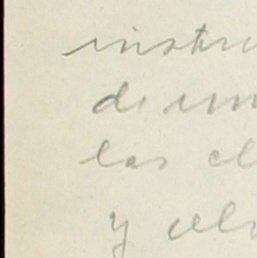 instru
de un
las cl
y